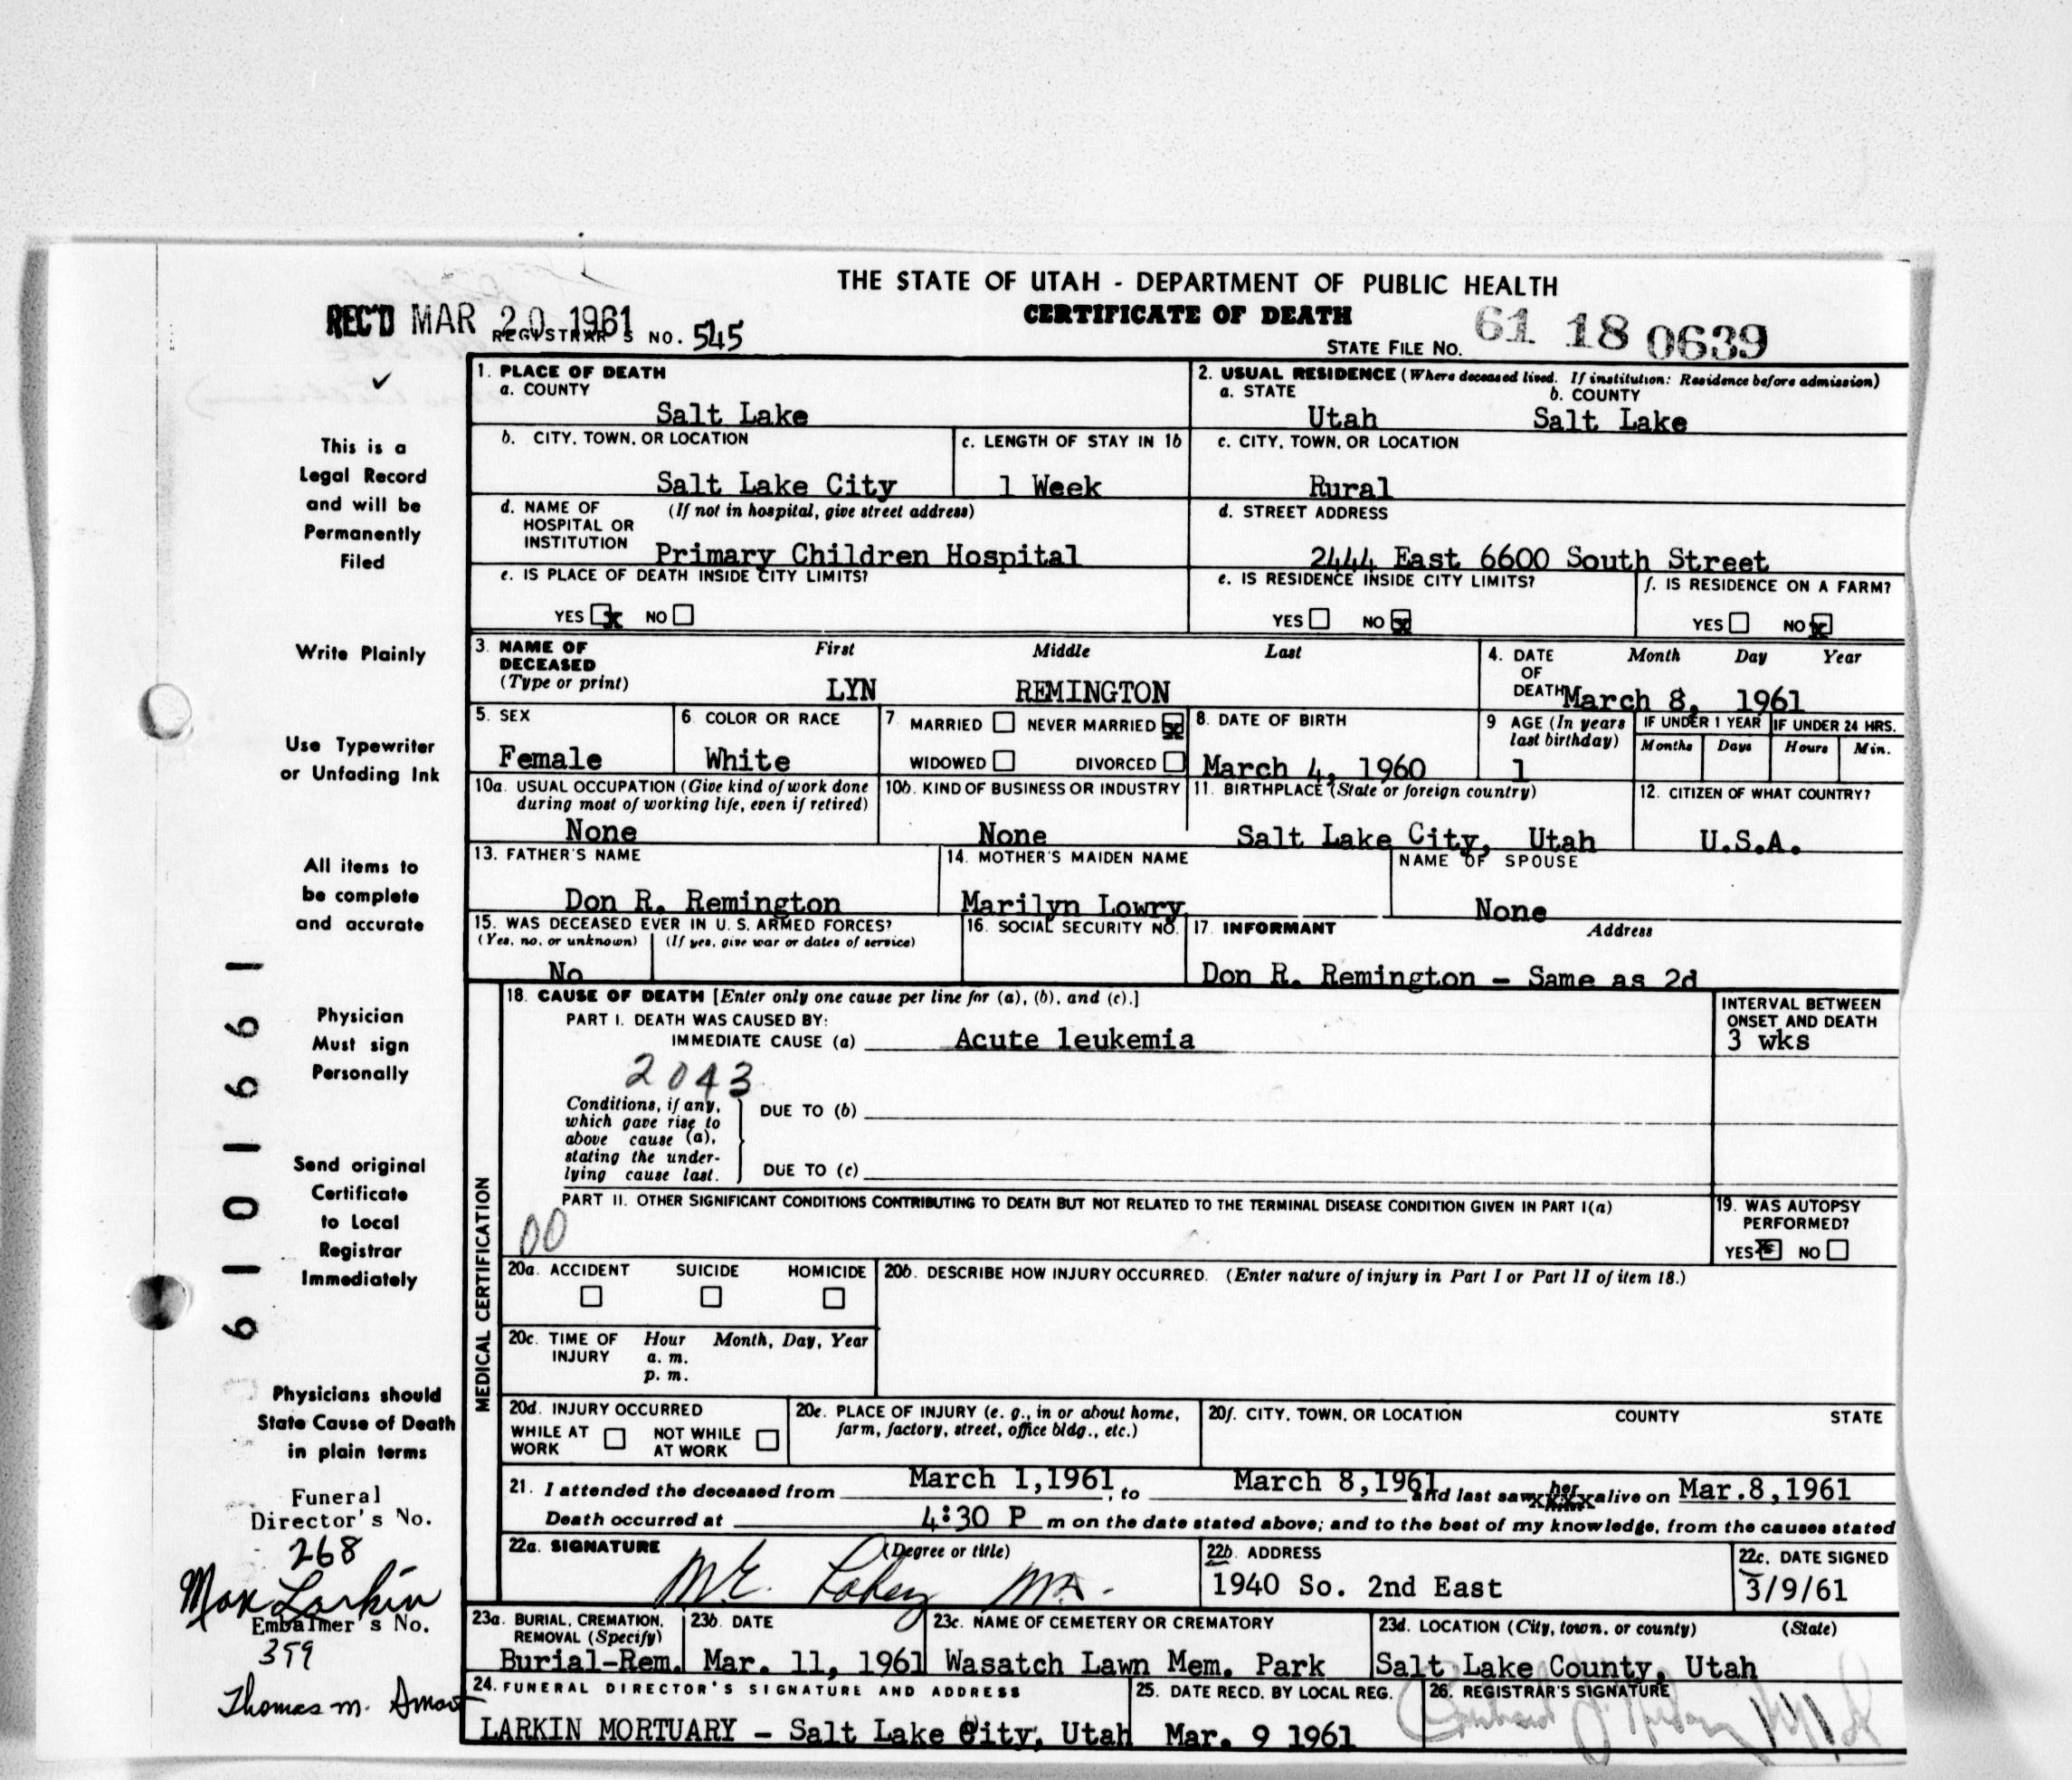 THE STATE OF UTAH - DEPARTMENT OF PUBLIC HEALTH
CERTIFICATE OF DEATH
REC'D MAR 20 1961
REGISTRAR'S NO. 545
STATE FILE NO. 61 18 0639
This is a
Legal Record
and will be
Permanently
Filed
Write Plainly
Use Typewriter
or Unfading Ink
All items to
be complete
and accurate
Physician
Must sign
Personally
Send original
Certificate
to Local
Registrar
Immediately
Physicians should
State Cause of Death
in plain terms
Funeral
Director's No.
268
Max Larkin
Embalmer's No.
359
Thomas M.
6101661
1. PLACE OF DEATH
a. COUNTY
Salt Lake
2. USUAL RESIDENCE (Where deceased lived. If institution: Residence before admission)
a. STATE b. COUNTY
Utah Salt Lake
b. CITY, TOWN, OR LOCATION
Salt Lake City
c. LENGTH OF STAY IN 1b
1 Week
c. CITY, TOWN, OR LOCATION
Rural
d. NAME OF (If not in hospital, give street address)
HOSPITAL OR
INSTITUTION Primary Children Hospital
d. STREET ADDRESS
2444 East 6600 South Street
e. IS PLACE OF DEATH INSIDE CITY LIMITS?
YES x NO
e. IS RESIDENCE INSIDE CITY LIMITS?
YES NO x
f. IS RESIDENCE ON A FARM?
YES NO x
3. NAME OF First Middle Last
DECEASED
(Type or print) LYN REMINGTON
4. DATE Month Day Year
OF
DEATH March 8, 1961
5. SEX
Female
6. COLOR OR RACE
White
7. MARRIED NEVER MARRIED x
WIDOWED DIVORCED
8. DATE OF BIRTH
March 4, 1960
9 AGE (In years
last birthday)
1
IF UNDER 1 YEAR
Months Days
IF UNDER 24 HRS.
Hours Min.
10a. USUAL OCCUPATION (Give kind of work done
during most of working life, even if retired)
None
10b. KIND OF BUSINESS OR INDUSTRY
None
11. BIRTHPLACE (State or foreign country)
Salt Lake City, Utah
12. CITIZEN OF WHAT COUNTRY?
U.S.A.
13. FATHER'S NAME
Don R. Remington
14. MOTHER'S MAIDEN NAME
Marilyn Lowry
NAME OF SPOUSE
None
15. WAS DECEASED EVER IN U. S. ARMED FORCES?
(Yes, no, or unknown) (If yes, give war or dates of service)
No
16. SOCIAL SECURITY NO.
17. INFORMANT Address
Don R. Remington - Same as 2d
MEDICAL CERTIFICATION
18. CAUSE OF DEATH [Enter only one cause per line for (a), (b), and (c).]
PART I. DEATH WAS CAUSED BY:
IMMEDIATE CAUSE (a) Acute leukemia
INTERVAL BETWEEN
ONSET AND DEATH
3 wks
2043
Conditions, if any,
which gave rise to
above cause (a),
stating the under-
lying cause last.
DUE TO (b)
DUE TO (c)
PART II. OTHER SIGNIFICANT CONDITIONS CONTRIBUTING TO DEATH BUT NOT RELATED TO THE TERMINAL DISEASE CONDITION GIVEN IN PART I(a)
00
19. WAS AUTOPSY
PERFORMED?
YES x NO
20a. ACCIDENT SUICIDE HOMICIDE
20b. DESCRIBE HOW INJURY OCCURRED. (Enter nature of injury in Part I or Part II of item 18.)
20c. TIME OF Hour Month, Day, Year
INJURY a. m.
p. m.
20d. INJURY OCCURRED
WHILE AT NOT WHILE
WORK AT WORK
20e. PLACE OF INJURY (e. g., in or about home,
farm, factory, street, office bldg., etc.)
20f. CITY, TOWN, OR LOCATION COUNTY STATE
21. I attended the deceased from March 1,1961, to March 8,1961 and last saw her xxxx alive on Mar.8,1961
Death occurred at 4:30 P m on the date stated above; and to the best of my knowledge, from the causes stated
22a. SIGNATURE (Degree or title)
M.E. Lahey M.D.
22b. ADDRESS
1940 So. 2nd East
22c. DATE SIGNED
3/9/61
23a. BURIAL, CREMATION,
REMOVAL (Specify)
Burial-Rem.
23b. DATE
Mar. 11, 1961
23c. NAME OF CEMETERY OR CREMATORY
Wasatch Lawn Mem. Park
23d. LOCATION (City, town, or county) (State)
Salt Lake County, Utah
24. FUNERAL DIRECTOR'S SIGNATURE AND ADDRESS
LARKIN MORTUARY - Salt Lake City, Utah
25. DATE RECD. BY LOCAL REG.
Mar. 9 1961
26. REGISTRAR'S SIGNATURE